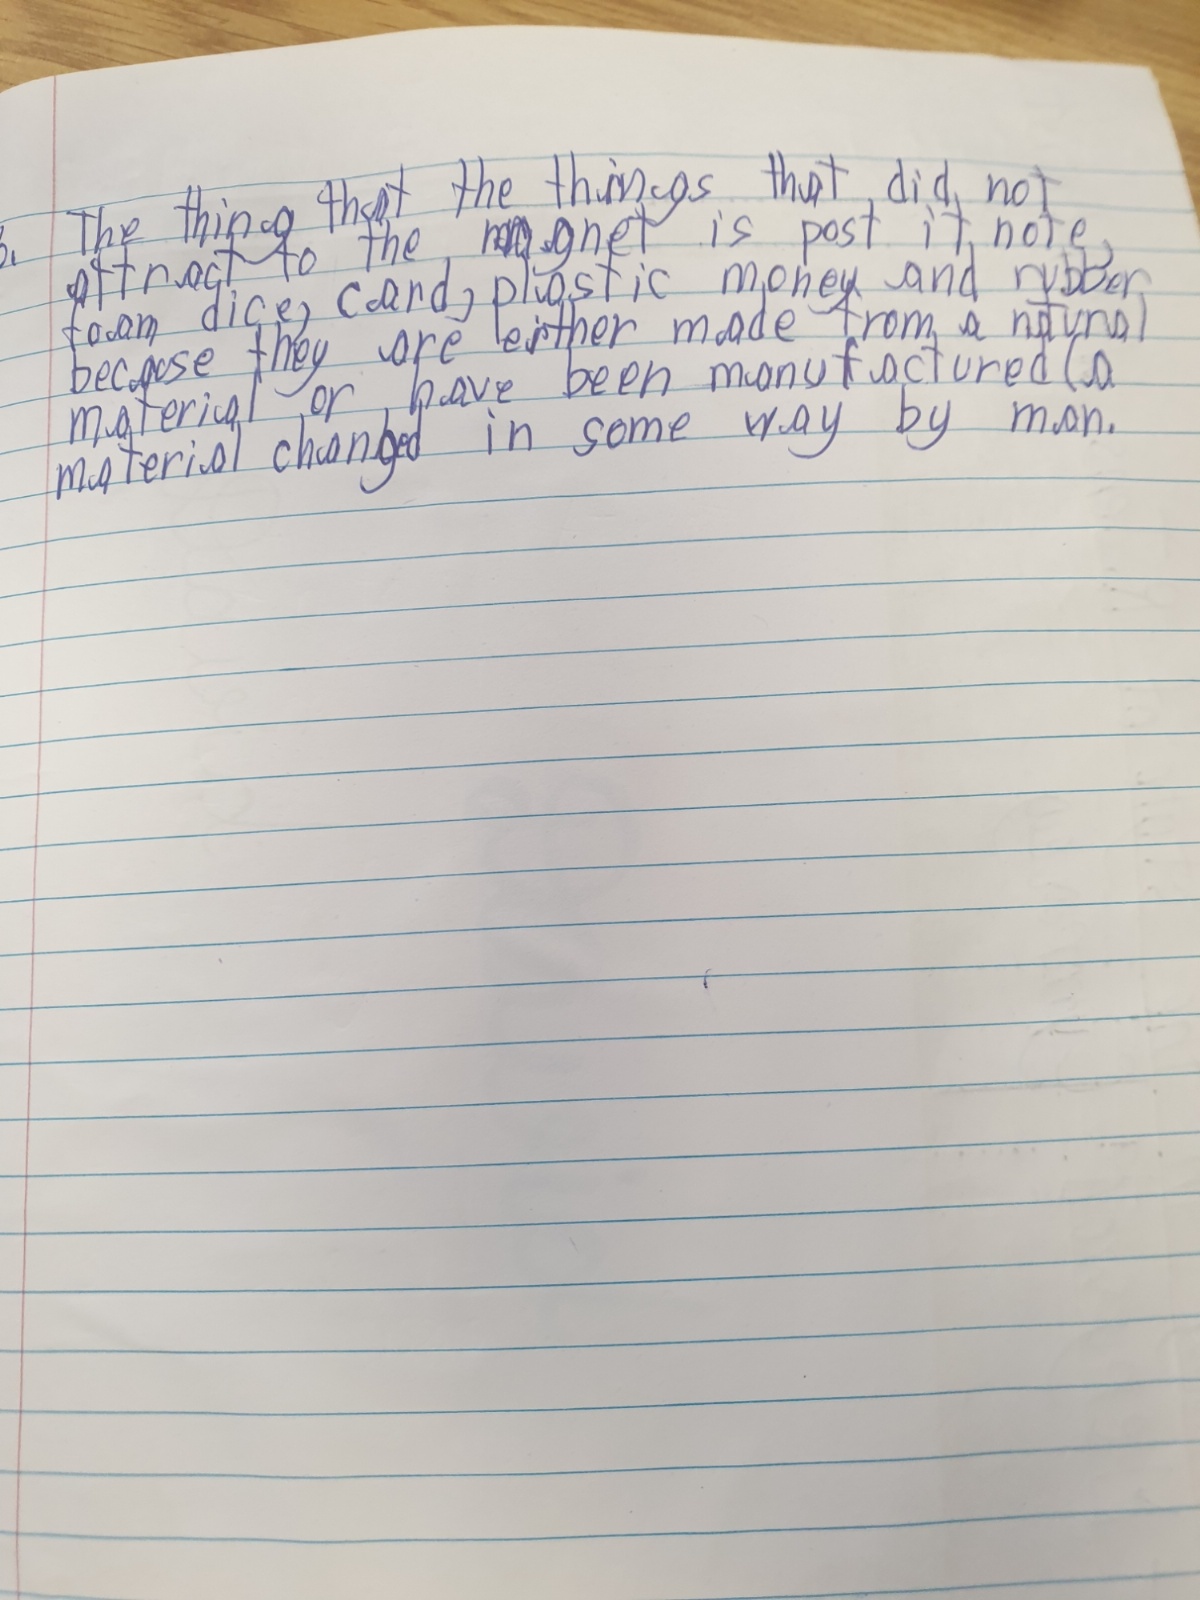 The thing that the things that did not
attract to the magnet is post it note,
foam dice, card, plastic money and rubber
becaose they are either made from a natural
material or have been manufactured (a
material changed in some way by man.